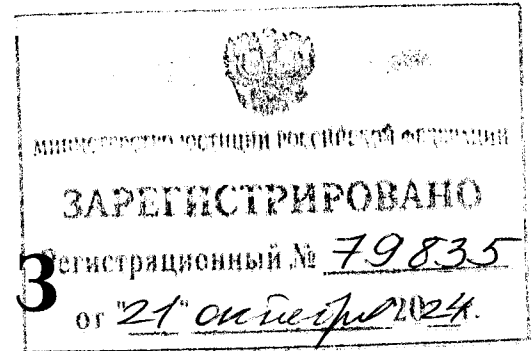 МИНИСТЕРСТВО ЮСТИЦИИ РОССИЙСКОЙ ФЕДЕРАЦИИ
ЗАРЕГИСТРИРОВАНО
Регистрационный № 79835
З
от "21" октября 2024.